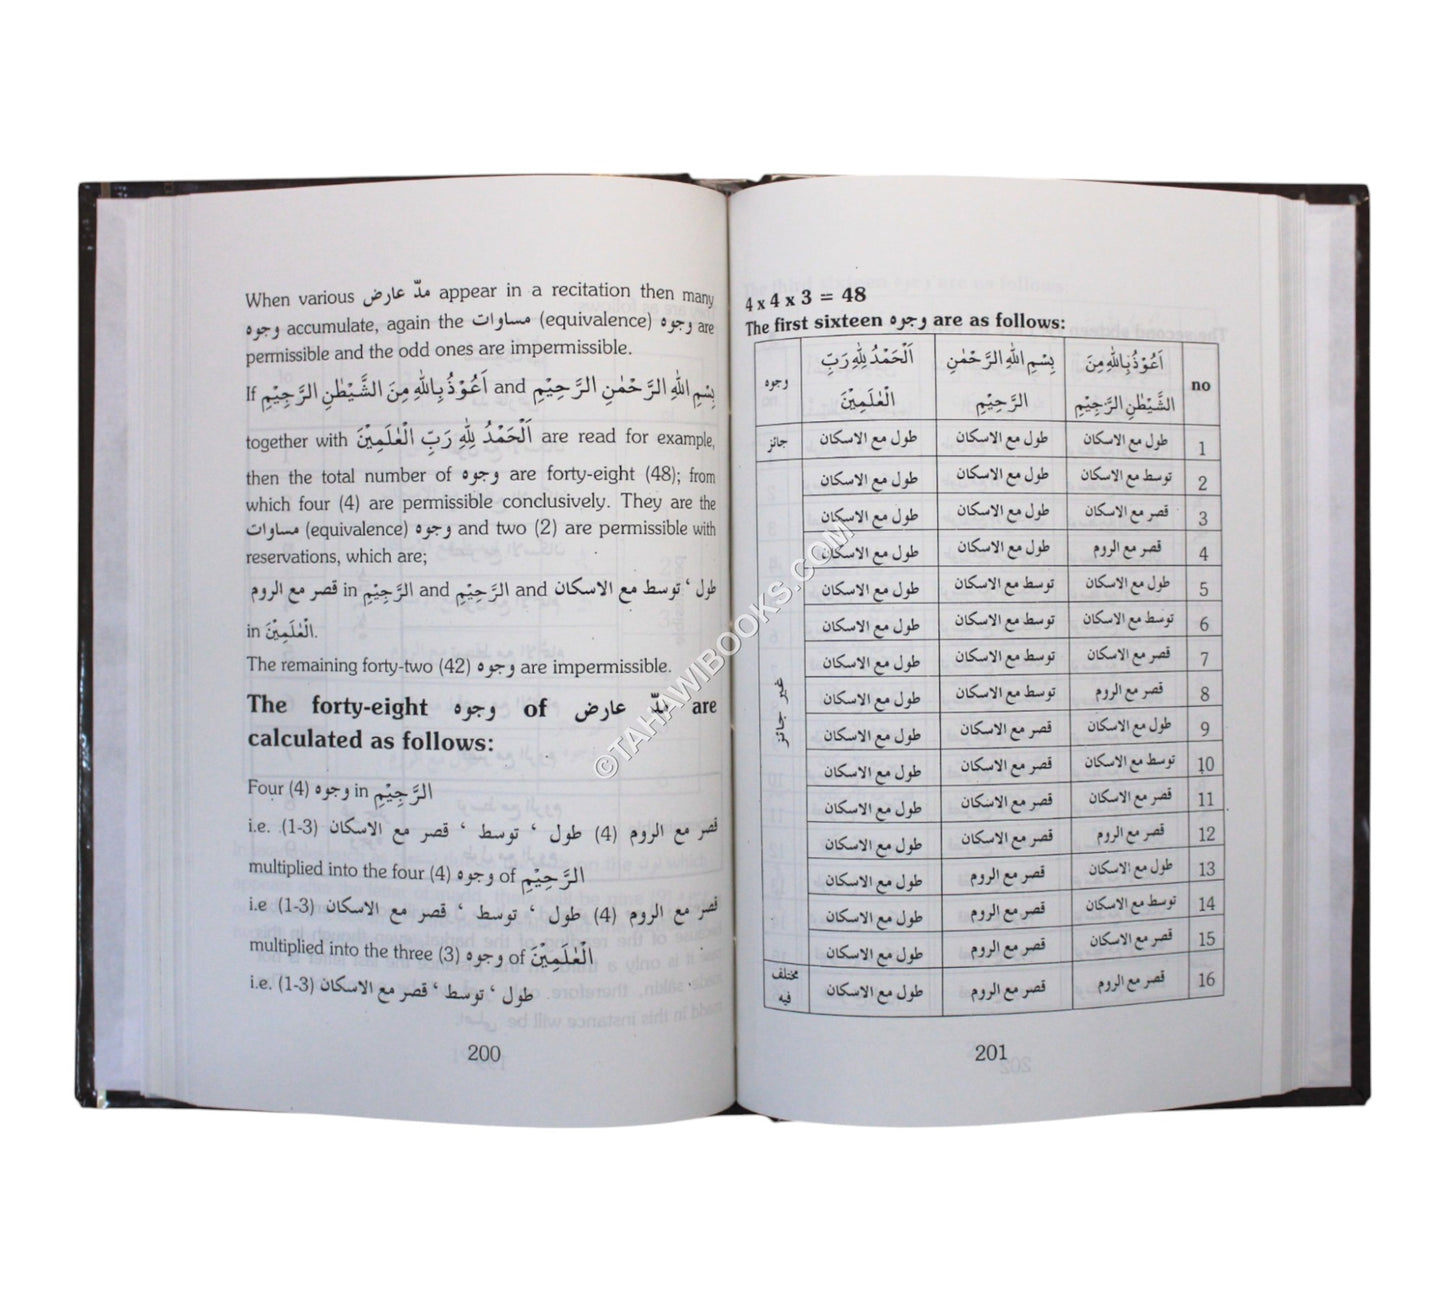 When various مدّ عارض appear in a recitation then many
وجوه accumulate, again the مساوات (equivalence) وجوه are
permissible and the odd ones are impermissible.
If اَعُوْذُ بِاللّٰهِ مِنَ الشَّيْطٰنِ الرَّجِيْمِ and بِسْمِ اللّٰهِ الرَّحْمٰنِ الرَّحِيْمِ
together with اَلْحَمْدُ لِلّٰهِ رَبِّ الْعٰلَمِيْنَ are read for example,
then the total number of وجوه are forty-eight (48); from
which four (4) are permissible conclusively. They are the
مساوات (equivalence) وجوه and two (2) are permissible with
reservations, which are;
قصر مع الروم in الرَّجِيْمِ and الرَّحِيْمِ and طول ، توسط مع الاسكان
in الْعٰلَمِيْنَ.
The remaining forty-two (42) وجوه are impermissible.
The forty-eight وجوه of مدّ عارض are
calculated as follows:
Four (4) وجوه in الرَّجِيْمِ
i.e. (1-3) طول ، توسط ، قصر مع الاسكان (4) قصر مع الروم
multiplied into the four (4) وجوه of الرَّحِيْمِ
i.e (1-3) طول ، توسط ، قصر مع الاسكان (4) قصر مع الروم
multiplied into the three (3) وجوه of الْعٰلَمِيْنَ
i.e. (1-3) طول ، توسط ، قصر مع الاسكان
200
4 x 4 x 3 = 48
The first sixteen وجوه are as follows:
no اَعُوْذُ بِاللّٰهِ مِنَ الشَّيْطٰنِ الرَّجِيْمِ بِسْمِ اللّٰهِ الرَّحْمٰنِ الرَّحِيْمِ اَلْحَمْدُ لِلّٰهِ رَبِّ الْعٰلَمِيْنَ وجوه
1 طول مع الاسكان طول مع الاسكان طول مع الاسكان جائز
2 توسط مع الاسكان طول مع الاسكان طول مع الاسكان
3 قصر مع الاسكان طول مع الاسكان طول مع الاسكان
4 قصر مع الروم طول مع الاسكان طول مع الاسكان
5 طول مع الاسكان توسط مع الاسكان طول مع الاسكان
6 توسط مع الاسكان توسط مع الاسكان طول مع الاسكان
7 قصر مع الاسكان توسط مع الاسكان طول مع الاسكان
8 قصر مع الروم توسط مع الاسكان طول مع الاسكان
غير جائز
9 طول مع الاسكان قصر مع الاسكان طول مع الاسكان
10 توسط مع الاسكان قصر مع الاسكان طول مع الاسكان
11 قصر مع الاسكان قصر مع الاسكان طول مع الاسكان
12 قصر مع الروم قصر مع الاسكان طول مع الاسكان
13 طول مع الاسكان قصر مع الروم طول مع الاسكان
14 توسط مع الاسكان قصر مع الروم طول مع الاسكان
15 قصر مع الاسكان قصر مع الروم طول مع الاسكان
16 قصر مع الروم قصر مع الروم طول مع الاسكان مختلف فيه
201
©TAHAWIBOOKS.COM